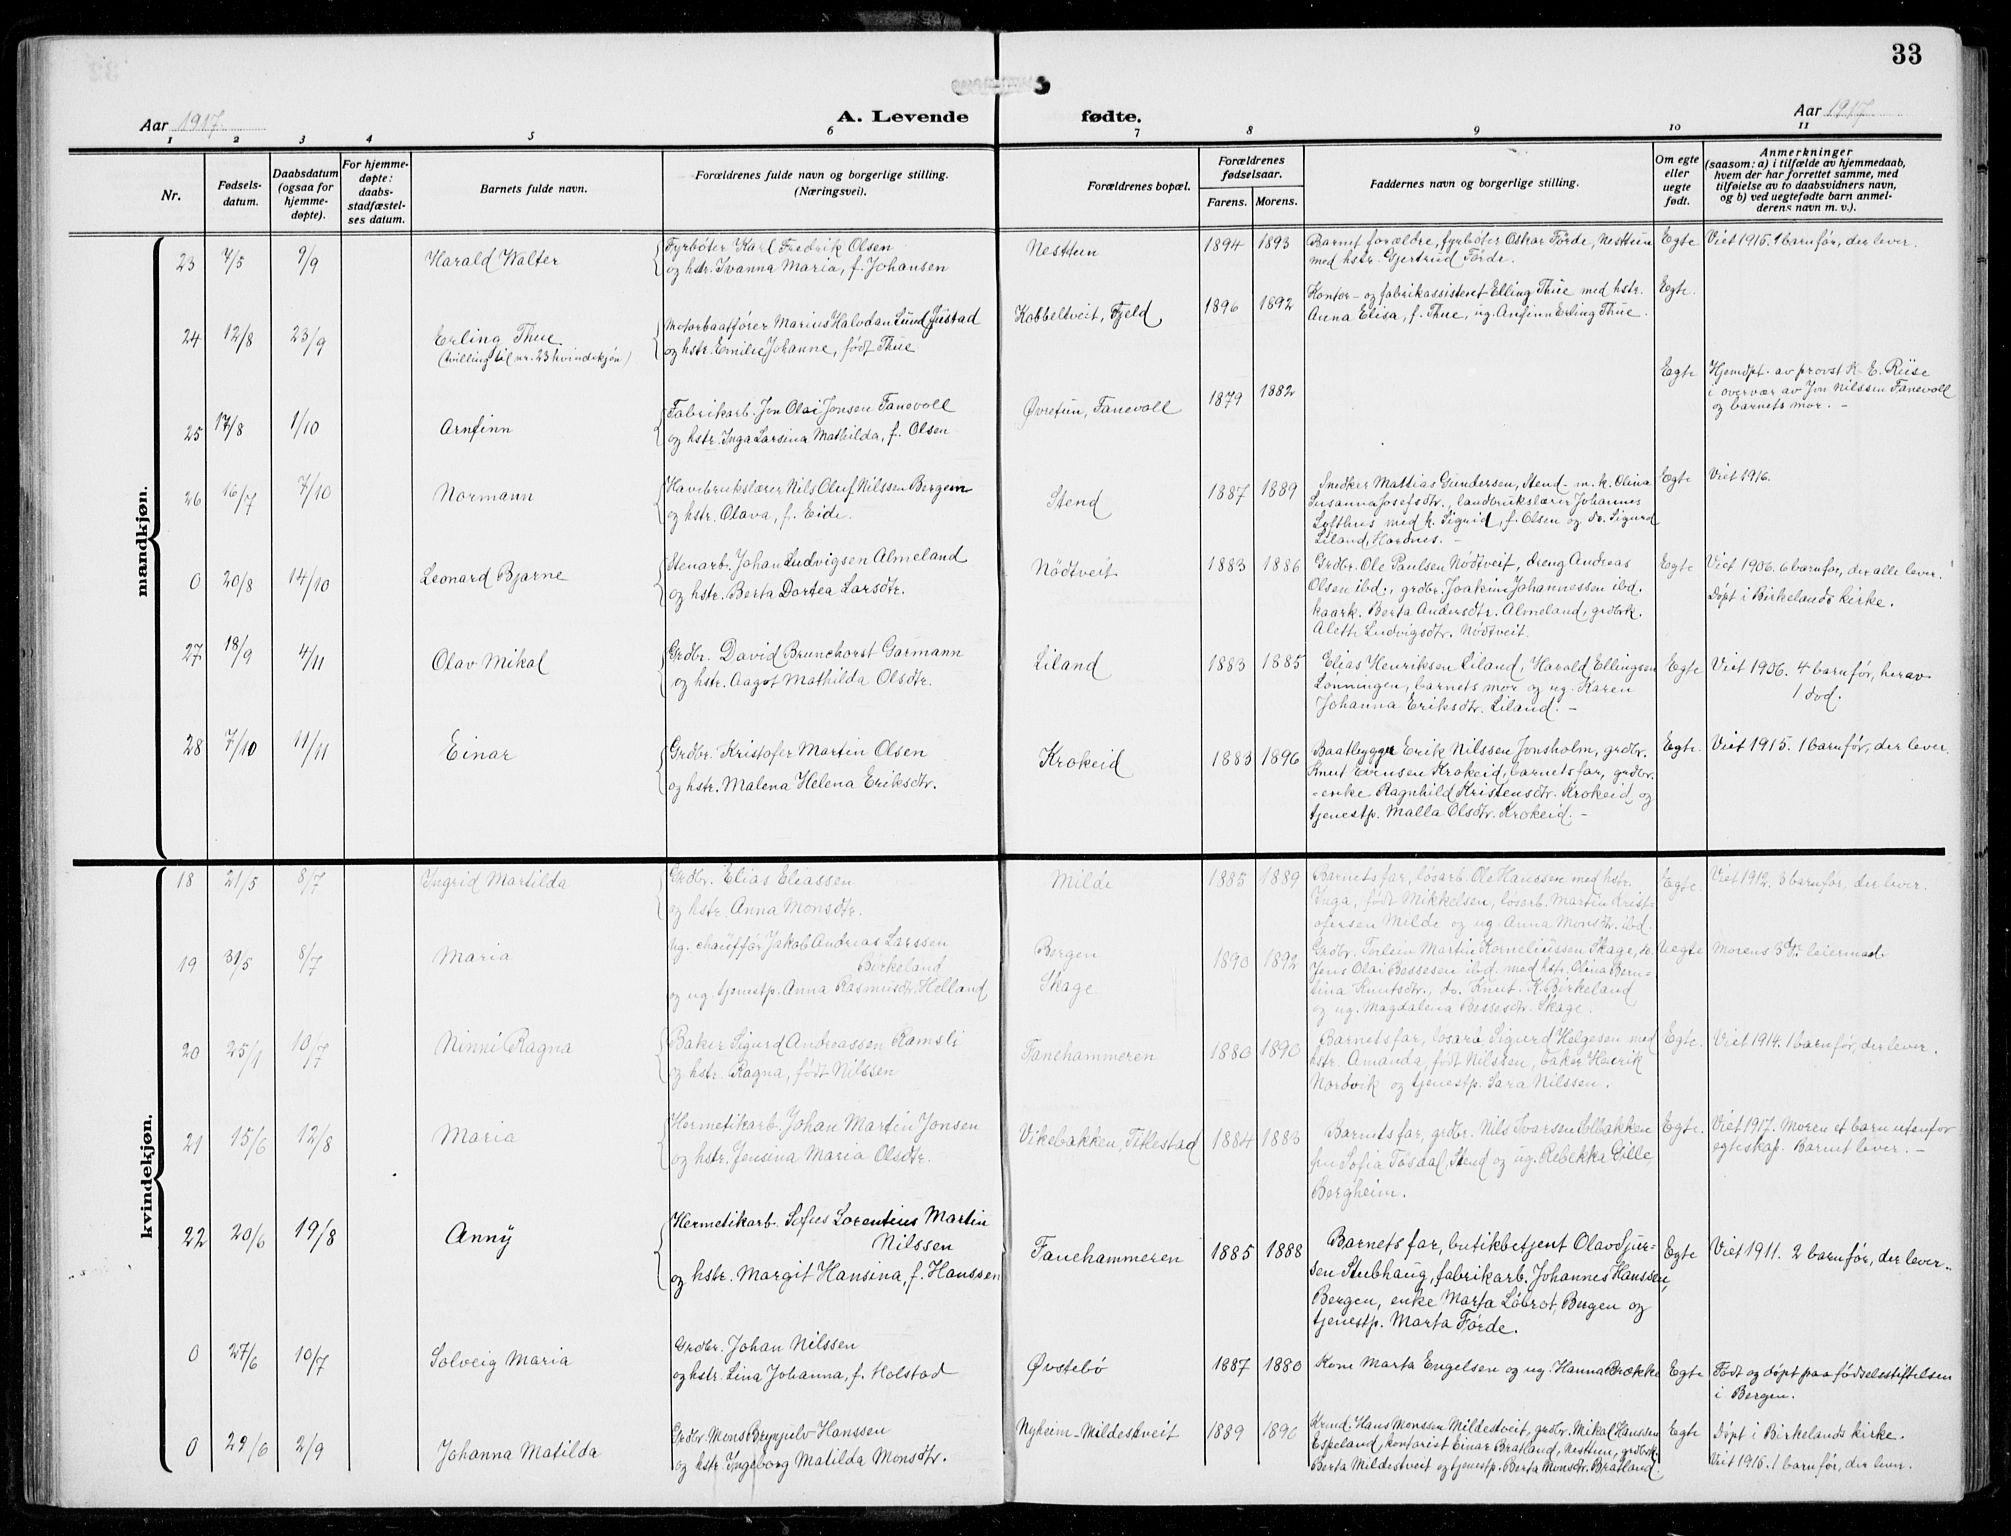 33
Aar 1917.
A. Levende fødte.
Aar 1917
1 2 3 4 5 6 7 8 9 10 11
Nr.
Fødsels-
datum.
Daabsdatum
(ogsaa for
hjemme-
døpte).
For hjemme-
døpte:
daabs-
stadfæstel-
ses datum.
Barnets fulde navn.
Forældrenes fulde navn og borgerlige stilling.
(Næringsvei).
Forældrenes bopæl.
Forældrenes
fødselsaar.
Farens. Morens.
Faddernes navn og borgerlige stilling.
Om egte
eller
uegte
født.
Anmerkninger
(saasom: a) i tilfælde av hjemmedaab,
hvem der har forrettet samme, med
tilføielse av to daabsvidners navn,
og b) ved uegtefødte barn anmel-
derens navn m. v.).
mandkjøn.
23 7/5 9/9 Harald Walter
Fyrbøter Karl Fredrik Olsen
og hstr. Ivanna Maria, f. Johansen
Nesttun 1894 1893
Barnet forældre, fyrbøter Oskar Förde, Nesttun
med hstr. Gjertrud Förde.
Egte Viet 1915. 1 barn før, der lever.
24 12/8 23/9 Erling Thue
(tvilling til nr. 23 kvindekjøn)
Motorbaatfører Marius Halvdan Lund Justad
og hstr. Emilie Johanne, født Thue
Kobbeltveit, Fjeld 1896 1892
Kontor- og fabrikassistent Elling Thue med hstr.
Anna Elisa, f. Thue, ug. Anfinn Erling Thue.
Egte.
25 17/8 1/10 Arnfinn
Fabrikarb. Jon Olai Jonsen Fanevoll
og hstr. Inga Larsina Mathilda, f. Olsen
Øvretun, Fanevoll 1879 1882
Egte Hjemdpt. av provst K. E. Riise
i overvær av Jon Nilssen Fanevoll
og barnets mor. -
26 16/7 7/10 Normann
Havebrukslærer Nils Oluf Nilssen Bergem
og hstr. Olava, f. Eide.
Stend 1887 1889
Snedker Mattias Gundersen, Stend m. h. Olina
Susanna Josefsdtr., landbrukslærer Johannes
Lofthus med h. Sigrid, f. Olsen og do. Sigurd
Liland, Hordnes. -
Egte Viet 1916.
0 20/8 14/10 Leonard Bjarne
Stenarb. Johan Ludvigsen Almeland
og hstr. Berta Dortea Larsdtr.
Nödtveit 1883 1886
Grdbr. Ole Paulsen Nödtveit, dreng Andreas
Olsen ibd., grdbr. Joakim Johannessen ibd.
kaark. Berta Andersdtr. Almeland, grdbrk.
Alette Ludvigsdtr. Nödtveit.
Egte Viet 1906. 6 barn før, der alle lever.
Døpt i Birkelands kirke.
27 18/9 4/11 Olav Mikal
Grdbr. David Brunchorst Garmann
og hstr. Aagot Mathilda Olsdtr.
Liland 1883 1885
Elias Henriksen Liland, Harald Ellingsen
Lønningen, barnets mor og ug. Karen
Johanna Eriksdtr. Liland. -
Egte Viet 1906. 4 barn før, herav
1 död.
28 7/10 11/11 Einar
Grdbr. Kristofer Martin Olsen
og hstr. Malena Helena Eriksdtr.
Krokeid 1883 1896
Baatbygger Erik Nilssen Jonsholm, grdbr.
Knut Evensen Krokeid, barnets far, grdbr.
-enke Ragnhild Kristensdtr. Krokeid og
tjenestp. Malla Olsdtr. Krokeid. -
Egte. Viet 1915. 1 barn før, der lever.
kvindekjøn.
18 21/5 8/7 Ingrid Martilda
Grdbr. Elias Eliassen
og hstr. Anna Monsdtr.
Milde 1885 1889
Barnets far, løsarb. Ole Hanssen med hstr.
Inga, født Mikkelsen, løsarb. Martin Krist-
ofersen Milde og ug. Anna Monsdtr. ibd.
Egte. Viet 1912. 3 barn før, der lever.
19 31/5 8/7 Maria
ug. chauffør Jakob Andreas Larssen
Birkeland
og ug. tjenestp. Anna Rasmusdtr. Helland
Bergen
Skage
1890 1892
Grdbr. Torleiv Martin Korneliussen Skage, do.
Jens Olai Bessesen ibd. med hstr. Olina Bern-
tina Knutsdtr., do. Knut K. Birkeland
og ug. Magdalena Bessesdtr. Skage.
Uegte Morens 3die leiermaal
20 25/1 10/7 Ninni Ragna
Baker Sigurd Andreassen Ramsli
og hstr. Ragna, født Nilssen
Fanehammeren 1880 1890
Barnets far, løsarb. Sigurd Helgesen med
hstr. Amanda, født Nilssen, baker Henrik
Nordvik og tjenestp. Sara Nilssen.
Egte. Viet 1914. 1 barn før, der lever.
21 15/6 12/8 Maria
Hermetikarb. Johan Martin Jonsen
og hstr. Jensina Maria Olsdtr.
Vikebakken, Titlestad 1884 1883
Barnets far, grdbr. Nils Ivarsen Albakken
fru Sofia Tøsdal, Stend og ug. Rebekka Gille,
Bergheim.
Egte. Viet 1917. Moren et barn utenfor
egteskap. Barnet lever. -
22 20/6 19/8 Anny
Hermetikarb. Sofus Lorentius Martin
Nilssen
og hstr. Margit Hansina, f. Hanssen
Fanehammeren 1885 1888
Barnets far, butikbetjent Olav Sjur-
sen Stubhaug, fabrikarb. Johannes Hanssen,
Bergen, enke Marta Löbrot, Bergen og
tjenestp. Marta Förde.
Egte Viet 1911. 2 barn før, der lever.
0 27/6 10/7 Solveig Maria
Grdbr. Johan Nilssen
og hstr. Lina Johanna, f. Holstad
Øvstebö 1887 1880
Kone Marta Engelsen og ug. Hanna Brække
Egte Født og døpt paa fødselsstiftelsen
i Bergen.
0 29/6 2/9 Johanna Matilda
Grdbr. Mons Brynjulv Hanssen
og hstr. Ingeborg Matilda Monsdtr.
Nyheim-Mildestveit 1889 1890
Hans Monssen Mildestveit, grdbr. Mikal Hanssen
Espeland, kontorist Einar Bratland, Nesttun, grdbrk.
Berta Mildestveit og tjenestp. Berta Monsdtr. Bratland.
Egte Døpt i Birkelands kirke.
Viet 1916. 1 barn før, der lever.